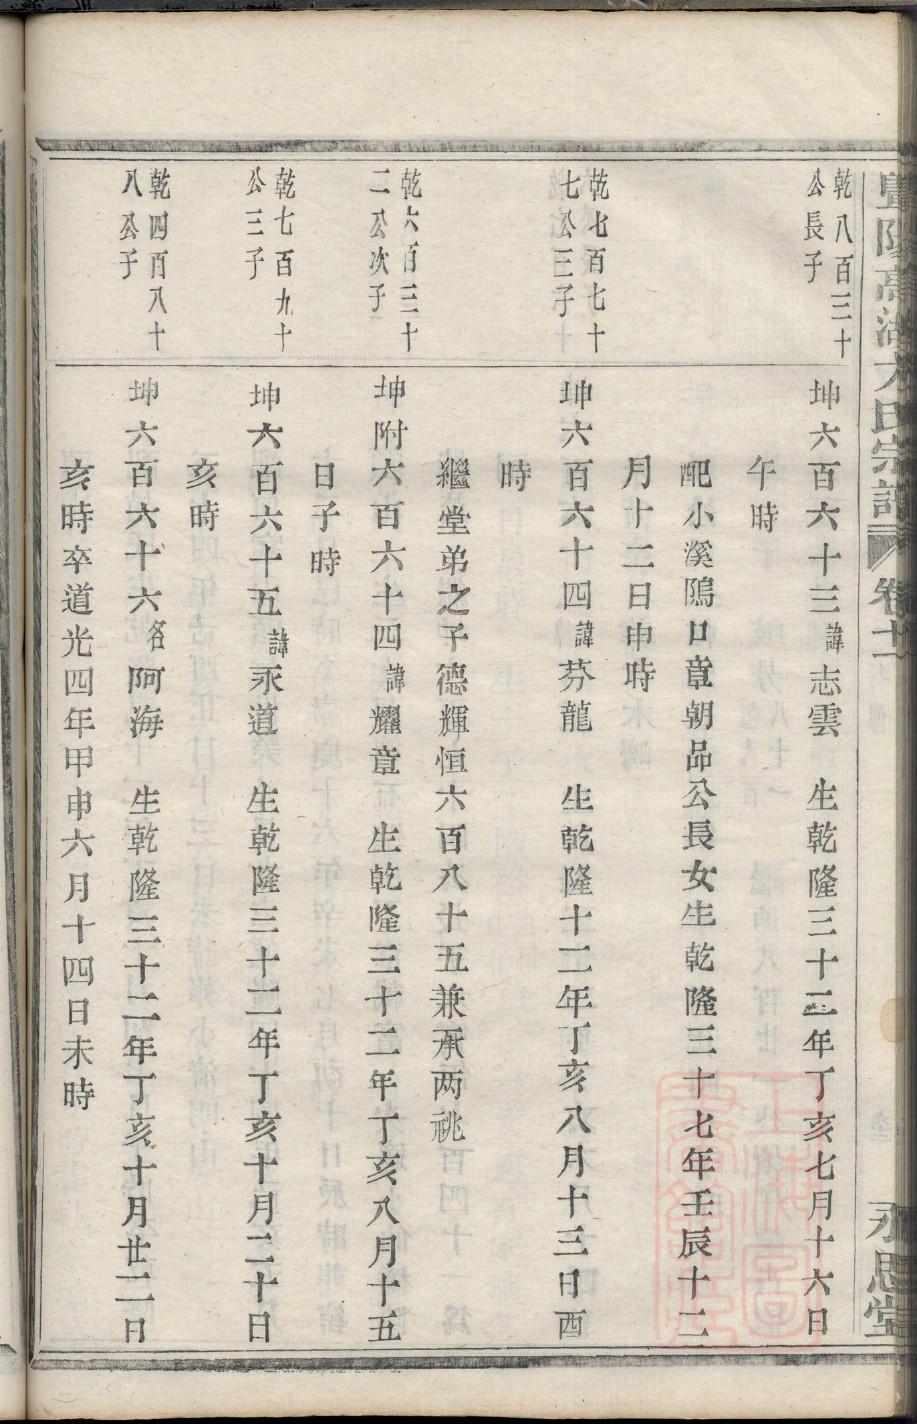 暨陽高湖方氏宗譜 卷十一 永思堂
乾八百三十
公長子
坤六百六十三諱志雲 生乾隆三十二年丁亥七月十六日
午時
配小溪隝口章朝品公長女生乾隆三十七年壬辰十二
月十二日申時
乾七百七十
七公三子
坤六百六十四諱芬龍 生乾隆十二年丁亥八月十三日酉
時
繼堂弟之子德輝恒六百八十五兼承两祧
乾六百三十
二公次子
坤附六百六十四諱耀章 生乾隆三十二年丁亥八月十五
日子時
乾七百九十
公三子
坤六百六十五諱永道 生乾隆三十二年丁亥十月二十日
亥時
乾四百八十
八公子
坤六百六十六名阿海 生乾隆三十二年丁亥十月廿二日
亥時卒道光四年甲申六月十四日未時